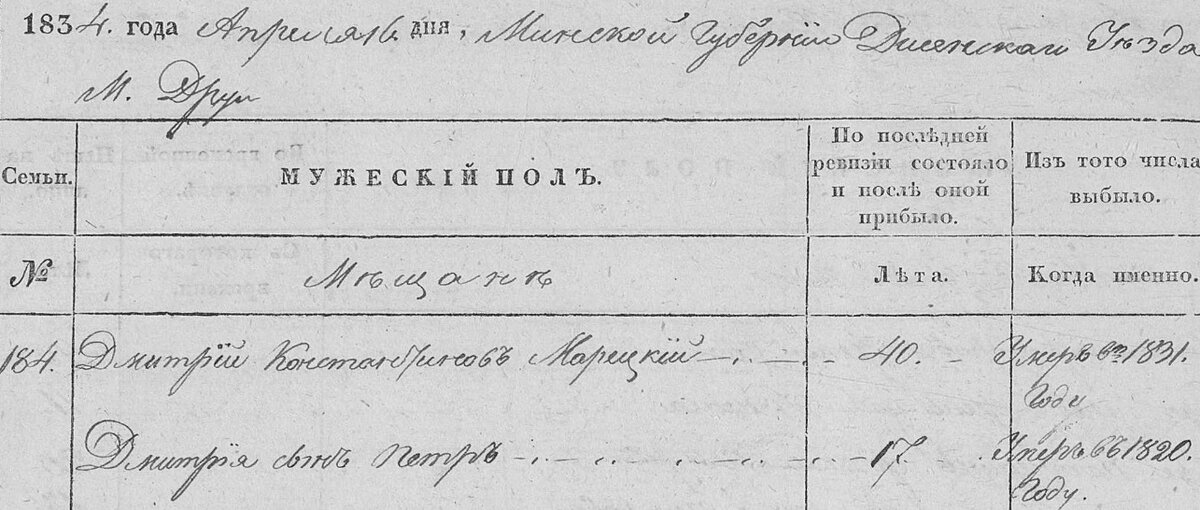 1834. года Апреля 16 дня, Минской Губерніи Дисенскаго Уѣзда
М. Друи
Семьи.
МУЖЕСКІЙ ПОЛЪ.
По послѣдней
ревизіи состояло
и послѣ оной
прибыло.
Изъ того числа
выбыло.
№
Мѣщанѣ
Лѣта.
Когда именно.
184. Дмитрій Константиновъ Марецкій 40. Умеръ въ 1831.
Годе
Дмитрія сынъ Петръ 17 Умеръ въ 1820.
Году.